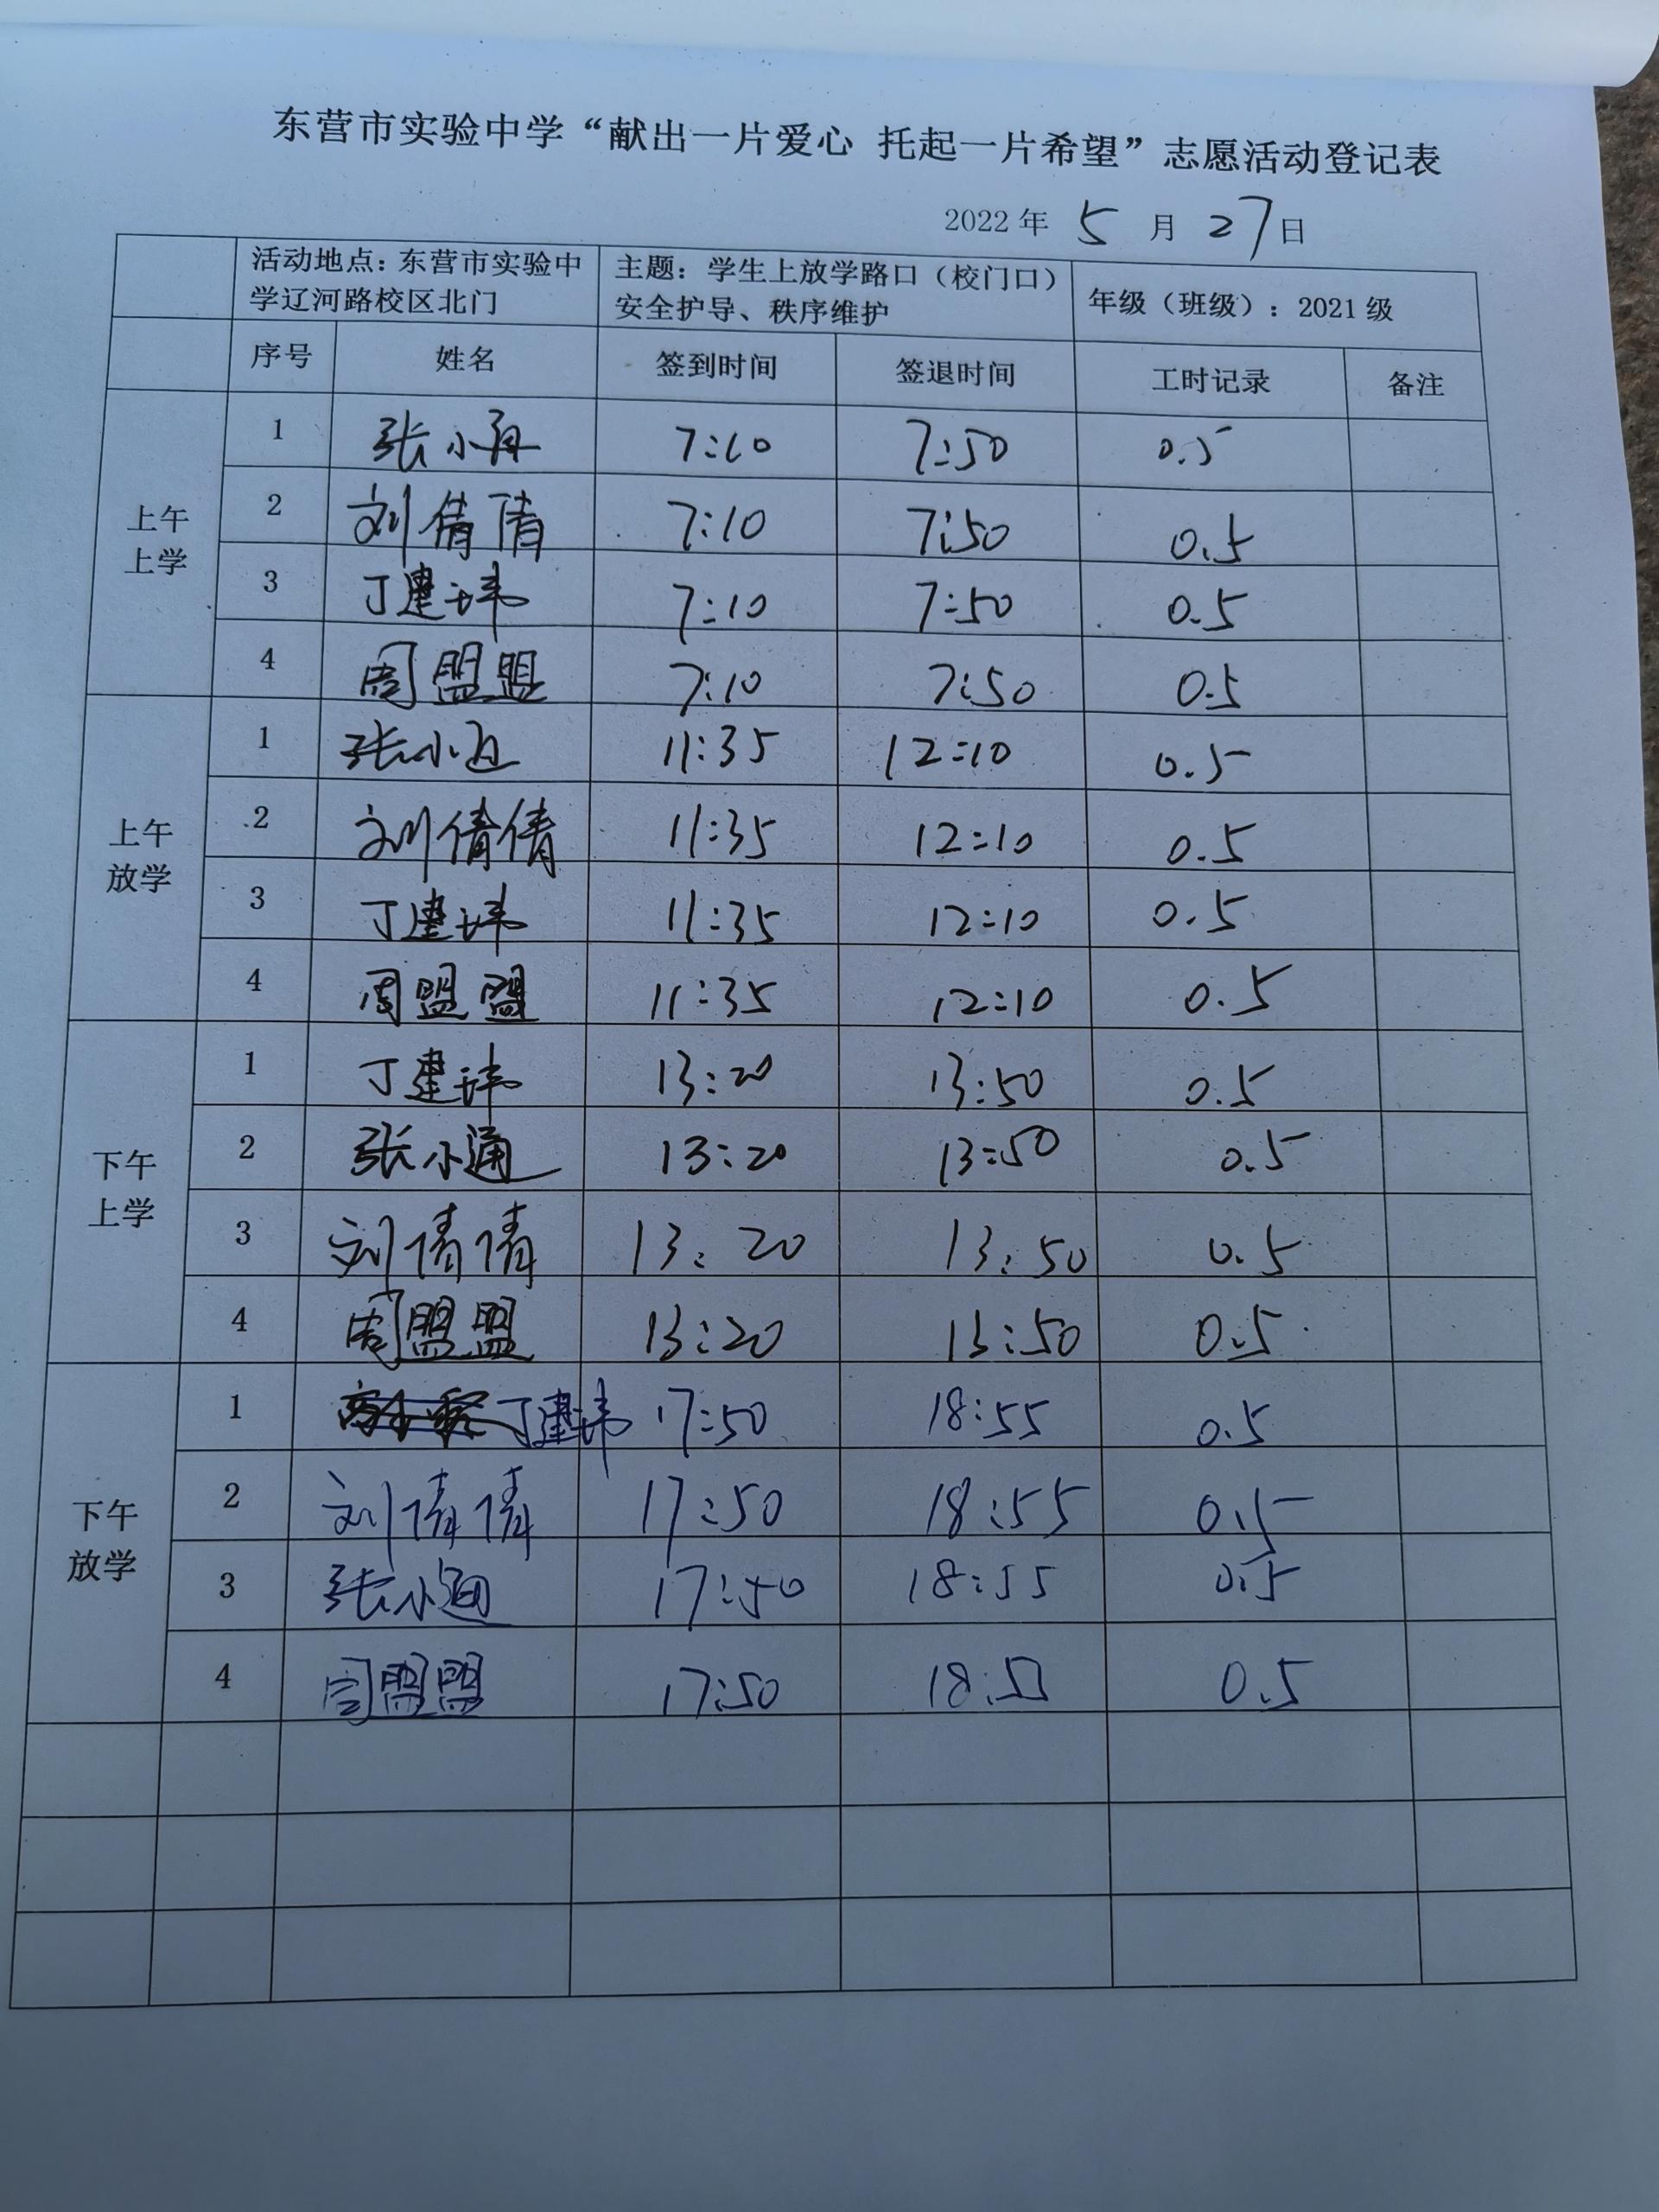 东营市实验中学“献出一片爱心 托起一片希望”志愿活动登记表
2022年 5 月 27日
活动地点：东营市实验中学辽河路校区北门 主题：学生上放学路口（校门口）安全护导、秩序维护 年级（班级）：2021级
序号 姓名 签到时间 签退时间 工时记录 备注
上午上学
1 张小 7:10 7:50 0.5
2 刘倩倩 7:10 7:50 0.5
3 丁建玮 7:10 7:50 0.5
4 周盟盟 7:10 7:50 0.5
上午放学
1 张小通 11:35 12:10 0.5
2 刘倩倩 11:35 12:10 0.5
3 丁建玮 11:35 12:10 0.5
4 周盟盟 11:35 12:10 0.5
下午上学
1 丁建玮 13:20 13:50 0.5
2 张小通 13:20 13:50 0.5
3 刘倩倩 13:20 13:50 0.5
4 周盟盟 13:20 13:50 0.5
下午放学
1 丁建玮 17:50 18:55 0.5
2 刘倩倩 17:50 18:55 0.5
3 张小通 17:50 18:55 0.5
4 周盟盟 17:50 18:55 0.5